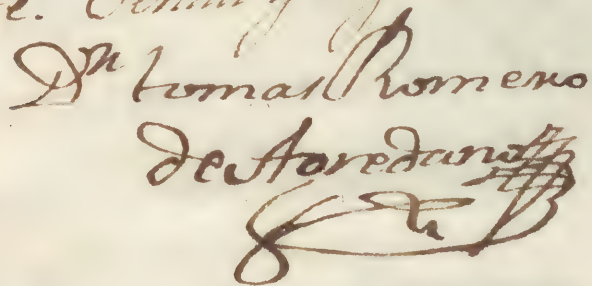 Dn tomas Romero
de Aoredano